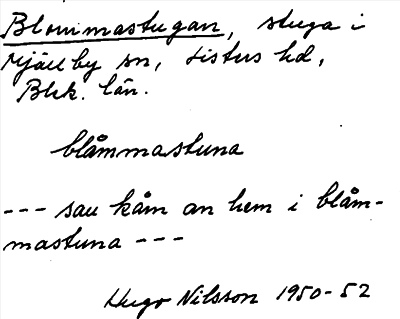 Blommastugan, stuga i
Mjällby sn, Listers hd,
Blek. län.
blåmmastuna
--- sau kåm an hem i blåm-
mastuna ---
Hugo Nilsson 1950-52